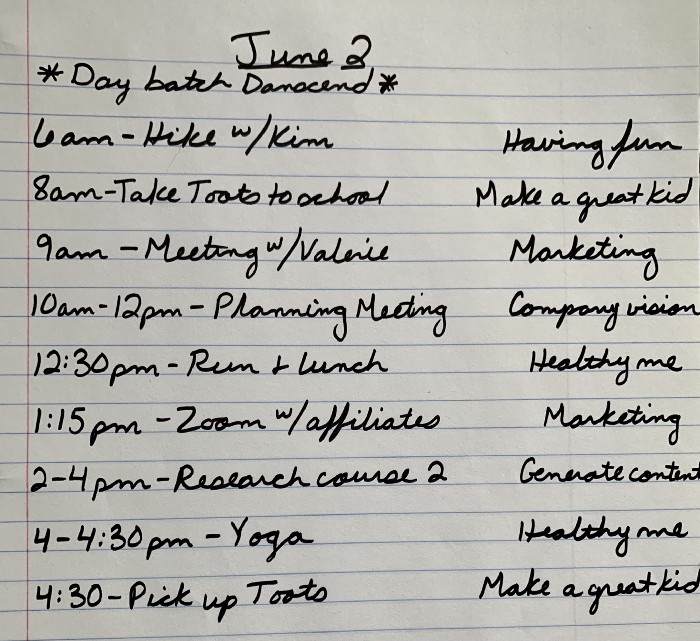 June 2
* Day batch Danocend *
6am - Hike w/Kim Having fun
8am - Take Toots to school Make a great kid
9am - Meeting w/Valerie Marketing
10am - 12pm - Planning Meeting Company vision
12:30pm - Run + lunch Healthy me
1:15pm - Zoom w/affiliates Marketing
2-4pm - Research course 2 Generate content
4-4:30pm - Yoga Healthy me
4:30 - Pick up Toots Make a great kid